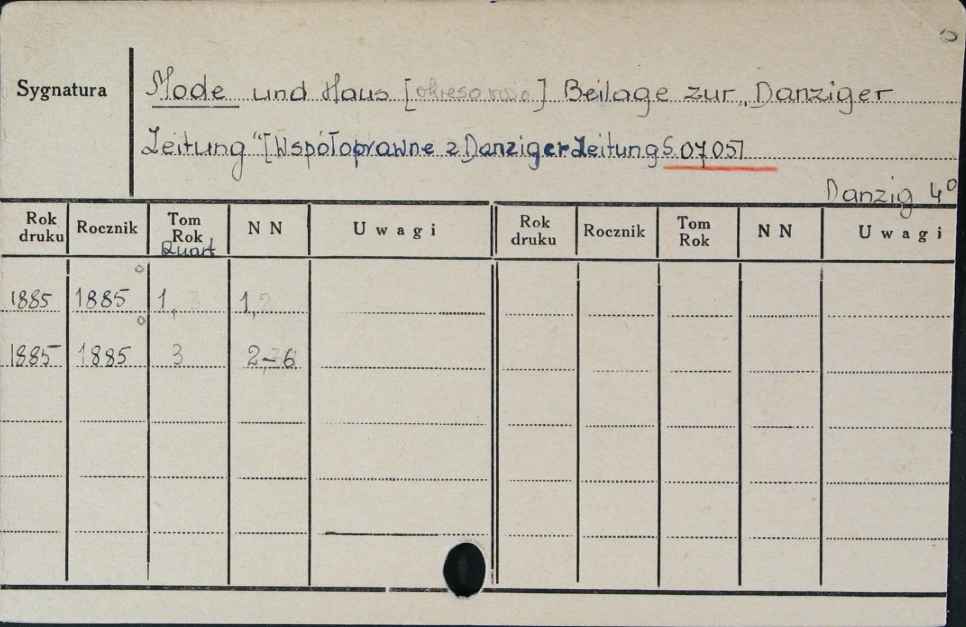 Sygnatura Mode und Haus [okresowo] Beilage zur „Danziger
Zeitung" [Współoprawne z Danziger Zeitung S.07.05]
Danzig 4°
Rok druku Rocznik Tom Rok Quart N N Uwagi Rok druku Rocznik Tom Rok N N Uwagi
1885 1885 1, 1,2
1885 1885 3 2-6